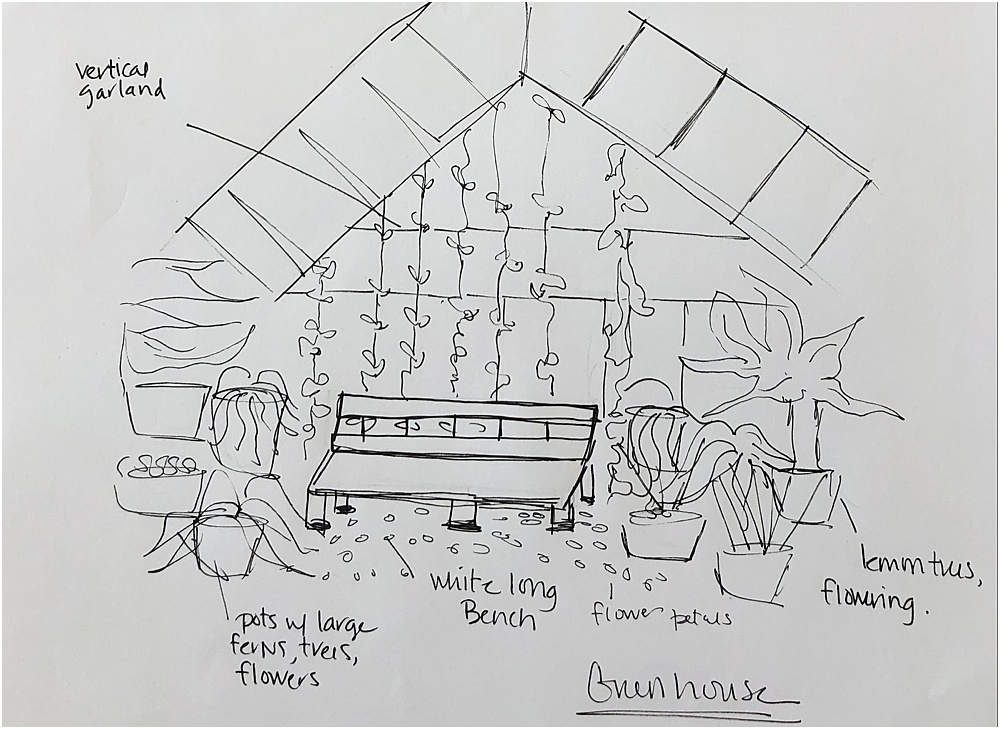 vertical
garland
white long
Bench
flower petals
lemmtrus,
flowring.
pots w/ large
ferns, trees,
flowers
Greenhouse